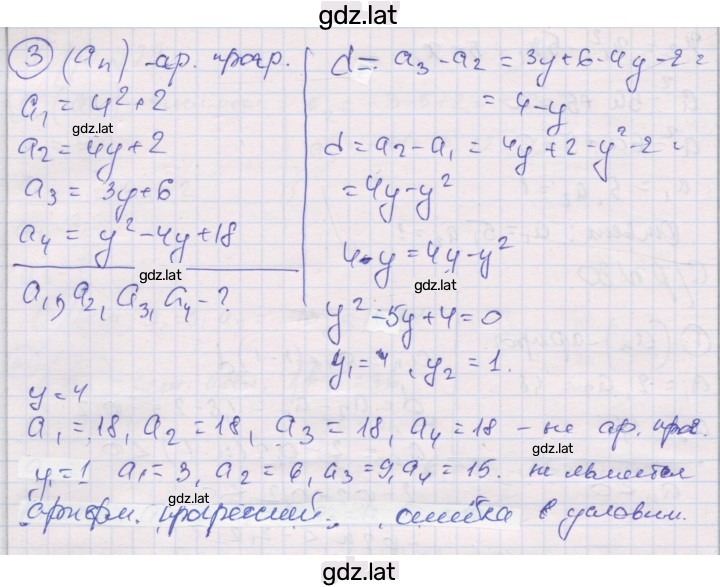 gdz.lat
3 (an) - ар. прогр.
a₁ = y² + 2
gdz.lat
a₂ = 4y + 2
a₃ = 3y + 6
a₄ = y² - 4y + 18
a₁, a₂, a₃, a₄ - ?
d = a₃ - a₂ = 3y + 6 - 4y - 2 =
= 4 - y
gdz.lat
d = a₂ - a₁ = 4y + 2 - y² - 2 =
= 4y - y²
gdz.lat
4 - y = 4y - y²
gdz.lat
y² - 5y + 4 = 0
y₁ = 4, y₂ = 1.
y = 4
a₁ = 18, a₂ = 18, a₃ = 18, a₄ = 18 - не ар. прог.
gdz.lat
y = 1 a₁ = 3, a₂ = 6, a₃ = 9, a₄ = 15. не является
gdz.lat
арифм. прогрессией, ошибка в условии.
gdz.lat
gdz.lat